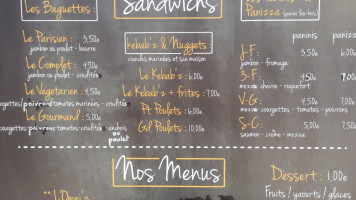 Les Baguettes :
Le Parisien : 3,50€
jambon ou poulet - beurre
Le Complet : 4,30€
jambon ou poulet - crudités
Le Vegetarien : 4,50€
courgettes/poivrons/tomates marinées - crudités
Le Gourmand : 5,00€
courgettes/poivrons/tomates - crudités - ranchers
ou poulet
Sandwichs
Kebab'z & Nuggets :
viandes marinées et sauce maison
Le Kebab'z : 6,00€
Le Kebab'z + frites : 7,00€
Pt Poulets : 6,00€
Gd Poulets : 10,00€
Panizza
paninis
J-F :
jambon - fromage
3-F :
mozza chèvre - roquefort
V-G :
mozza courgettes - tomates - poivrons
S-C : 5,00€ 7,50€
saumon - crème - mozza
Nos Menus
Dessert : 1,00€
Fruits / yaourts / glaces